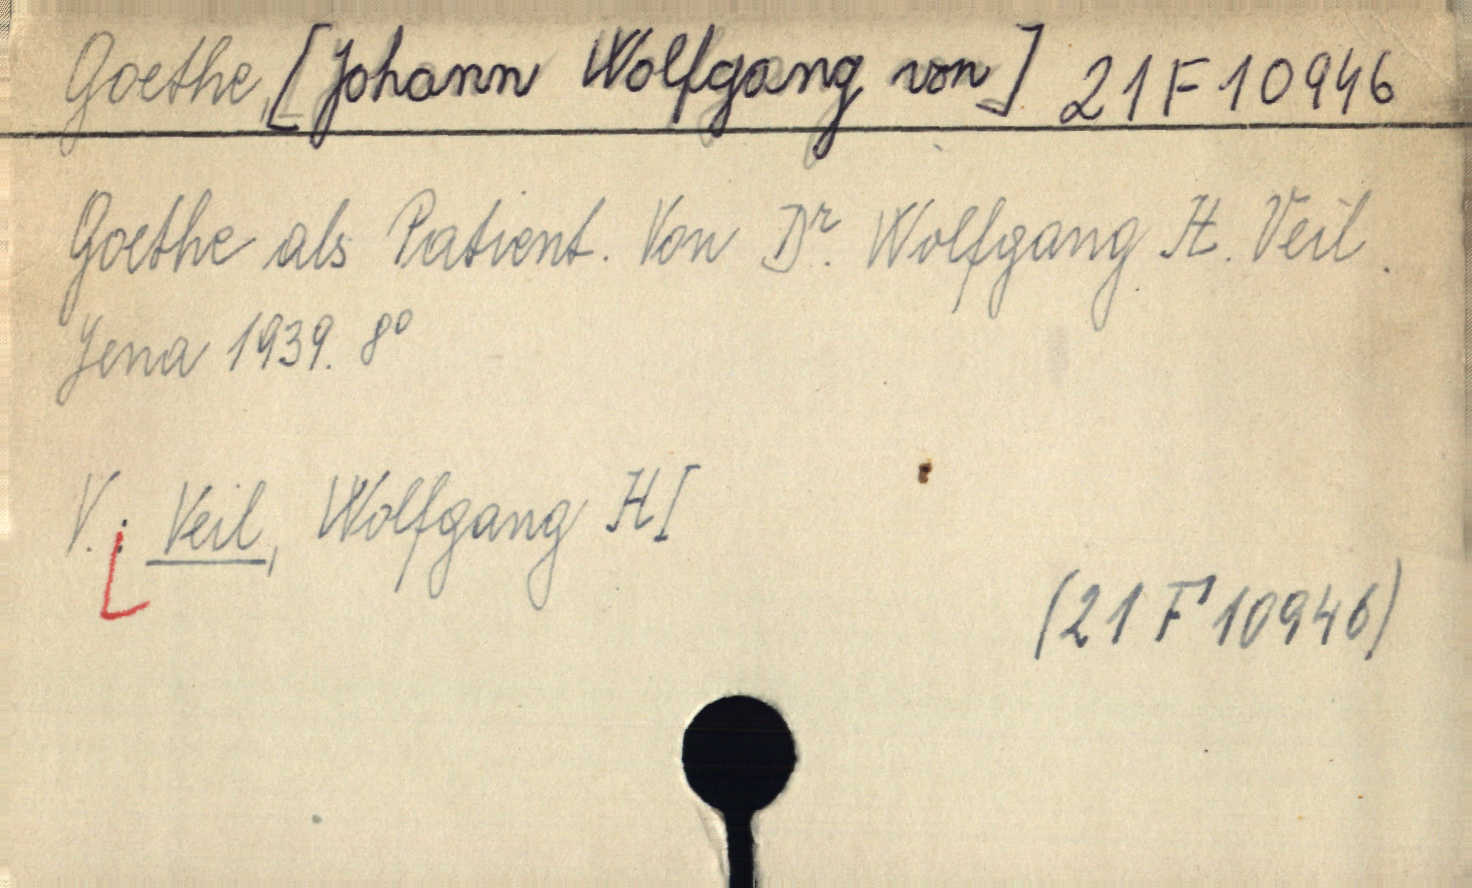 Goethe, [Johann Wolfgang von] 21 F 10946
Goethe als Patient. Von Dr. Wolfgang H. Veil.
Jena 1939. 8°
V.: Veil, Wolfgang H
(21 F 10946)